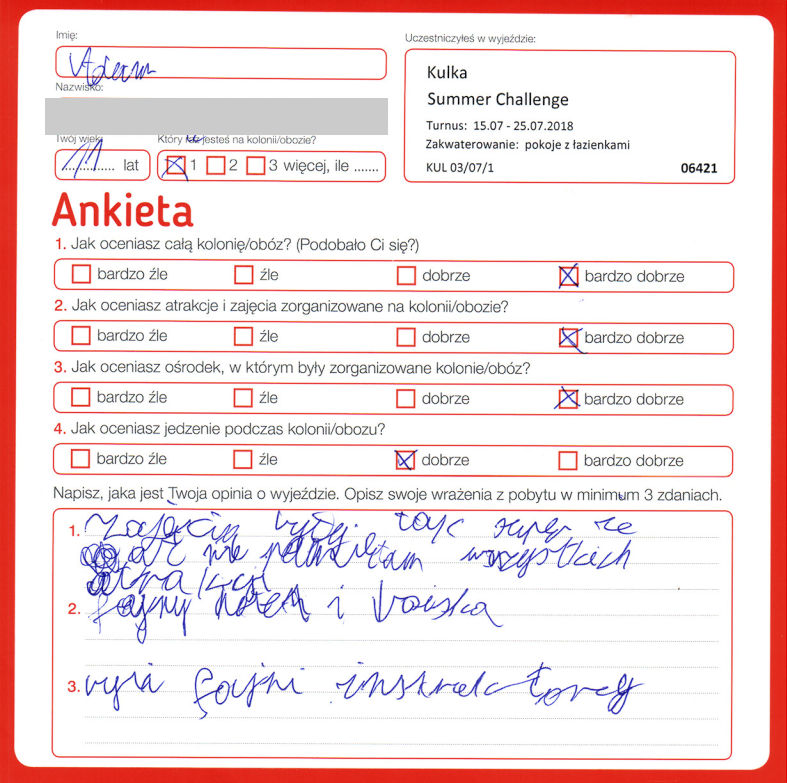 Imię:
Adam
Uczestniczyłeś w wyjeździe:
Nazwisko:
Kulka
Summer Challenge
Turnus: 15.07 - 25.07.2018
Zakwaterowanie: pokoje z łazienkami
KUL 03/07/1 06421
Twój wiek: Który raz jesteś na kolonii/obozie?
11 lat 1 2 3 więcej, ile .......
Ankieta
1. Jak oceniasz całą kolonię/obóz? (Podobało Ci się?)
bardzo źle źle dobrze bardzo dobrze
2. Jak oceniasz atrakcje i zajęcia zorganizowane na kolonii/obozie?
bardzo źle źle dobrze bardzo dobrze
3. Jak oceniasz ośrodek, w którym były zorganizowane kolonie/obóz?
bardzo źle źle dobrze bardzo dobrze
4. Jak oceniasz jedzenie podczas kolonii/obozu?
bardzo źle źle dobrze bardzo dobrze
Napisz, jaka jest Twoja opinia o wyjeździe. Opisz swoje wrażenia z pobytu w minimum 3 zdaniach.
1. zajęcia były tak super że
aż nie pamiętam wszystkich
atrakcji
2. fajny hotel i boiska
3. fajni instruktorzy